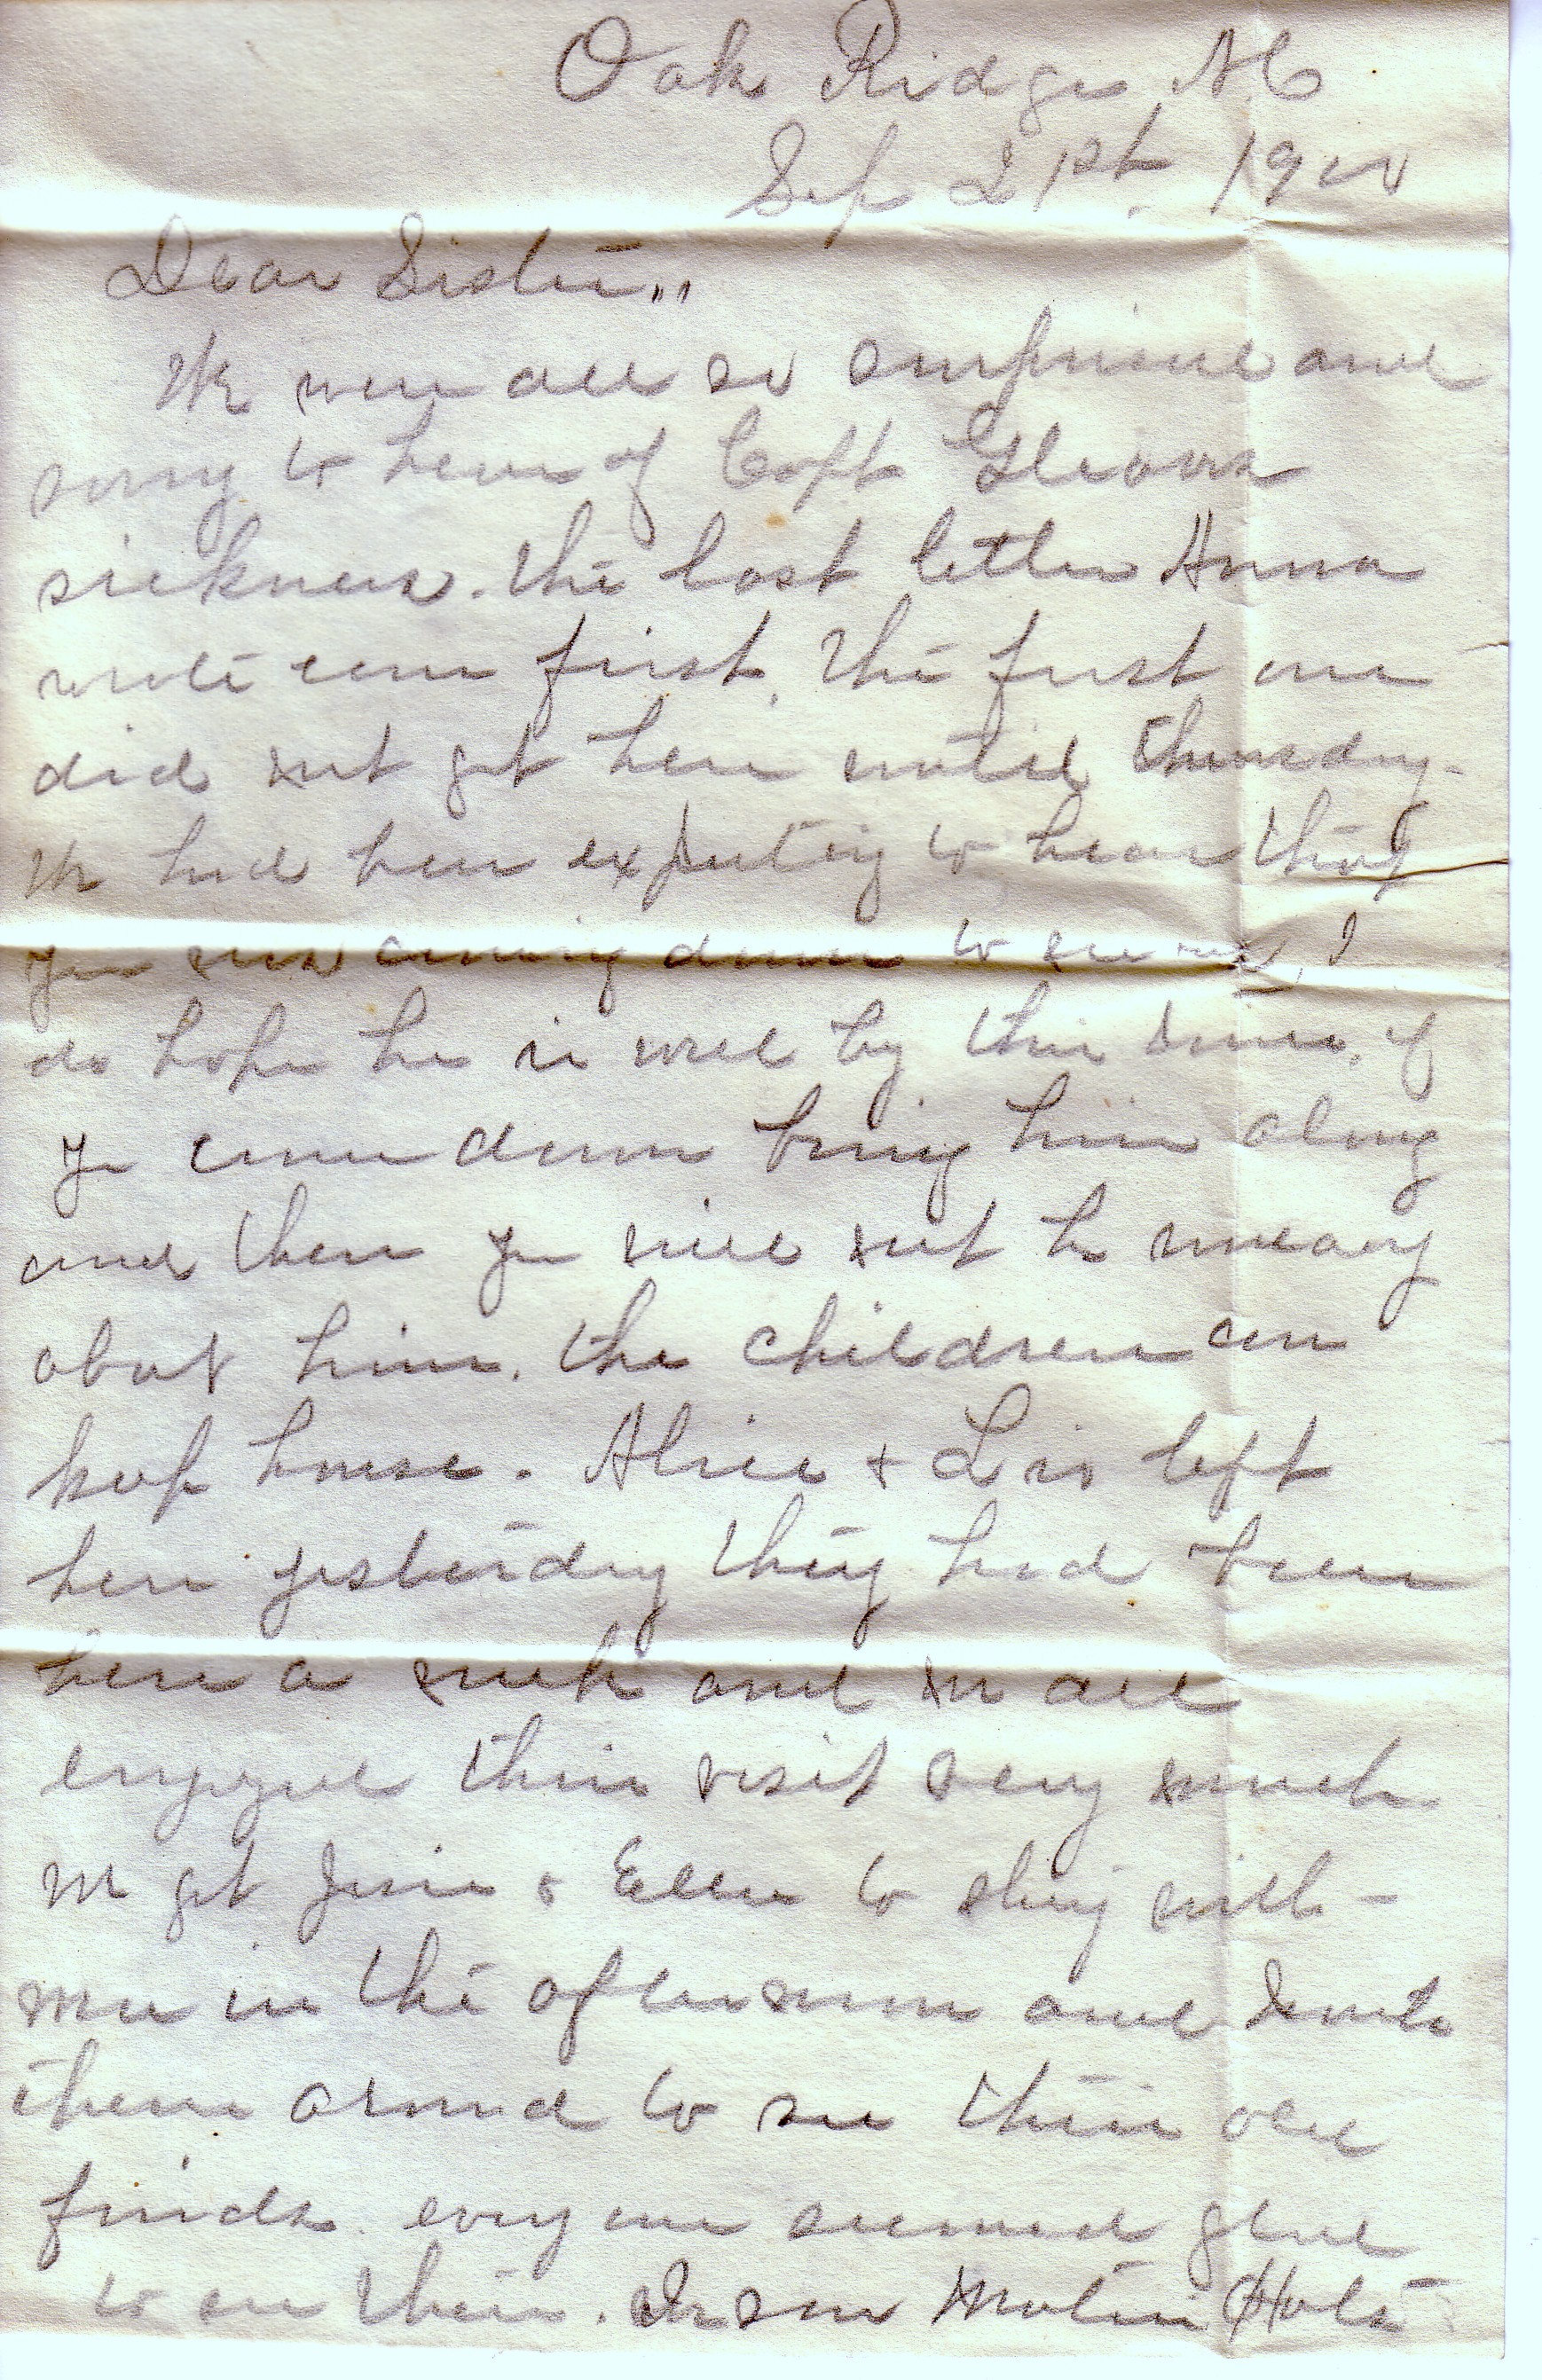 Oak Ridge NC
Sep 21st. 19
Dear Sister,,
We were all so surprised and
sorry to hear of Capt Gleaves
sickness. The last letter Anna
wrote came first. The first one
did not get here until Thursday-
We had been expecting to hear that
you were coming down to see us, I
do hope he is well by this time, if
you come down bring him along
and then you will not be uneasy
about him. The children can
keep house. Alice + Liz left
here yesterday they had been
here a week and we all
enjoyed their visit very much
We got Jinie & Ellen to stay with-
me in the afternoon and
them around to see their old
friends. every one seemed glad
to see them. We saw Holt